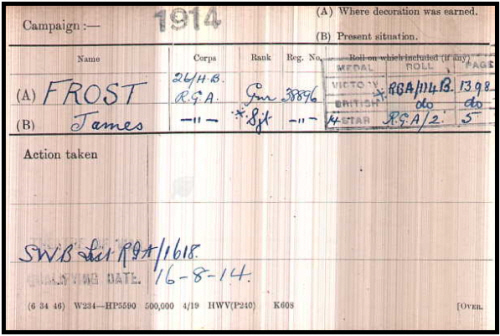 (A) Where decoration was earned.
Campaign :— 1914
(B) Present situation.
Name Corps Rank Reg. No. Roll on which included (if any)
MEDAL ROLL PAGE
(A) FROST 26/H.B. R.G.A. Gnr 38896 VICTORY * RGA/114B. 1398
BRITISH do do
(B) James —"— * Sjt —"— 14 STAR R.G.A/2. 5
Action taken
SWB List RGA/1618.
QUALIFYING DATE. 16-8-14.
(6 34 46) W234—HP5590 500,000 4/19 HWV(P240) K608 [OVER.